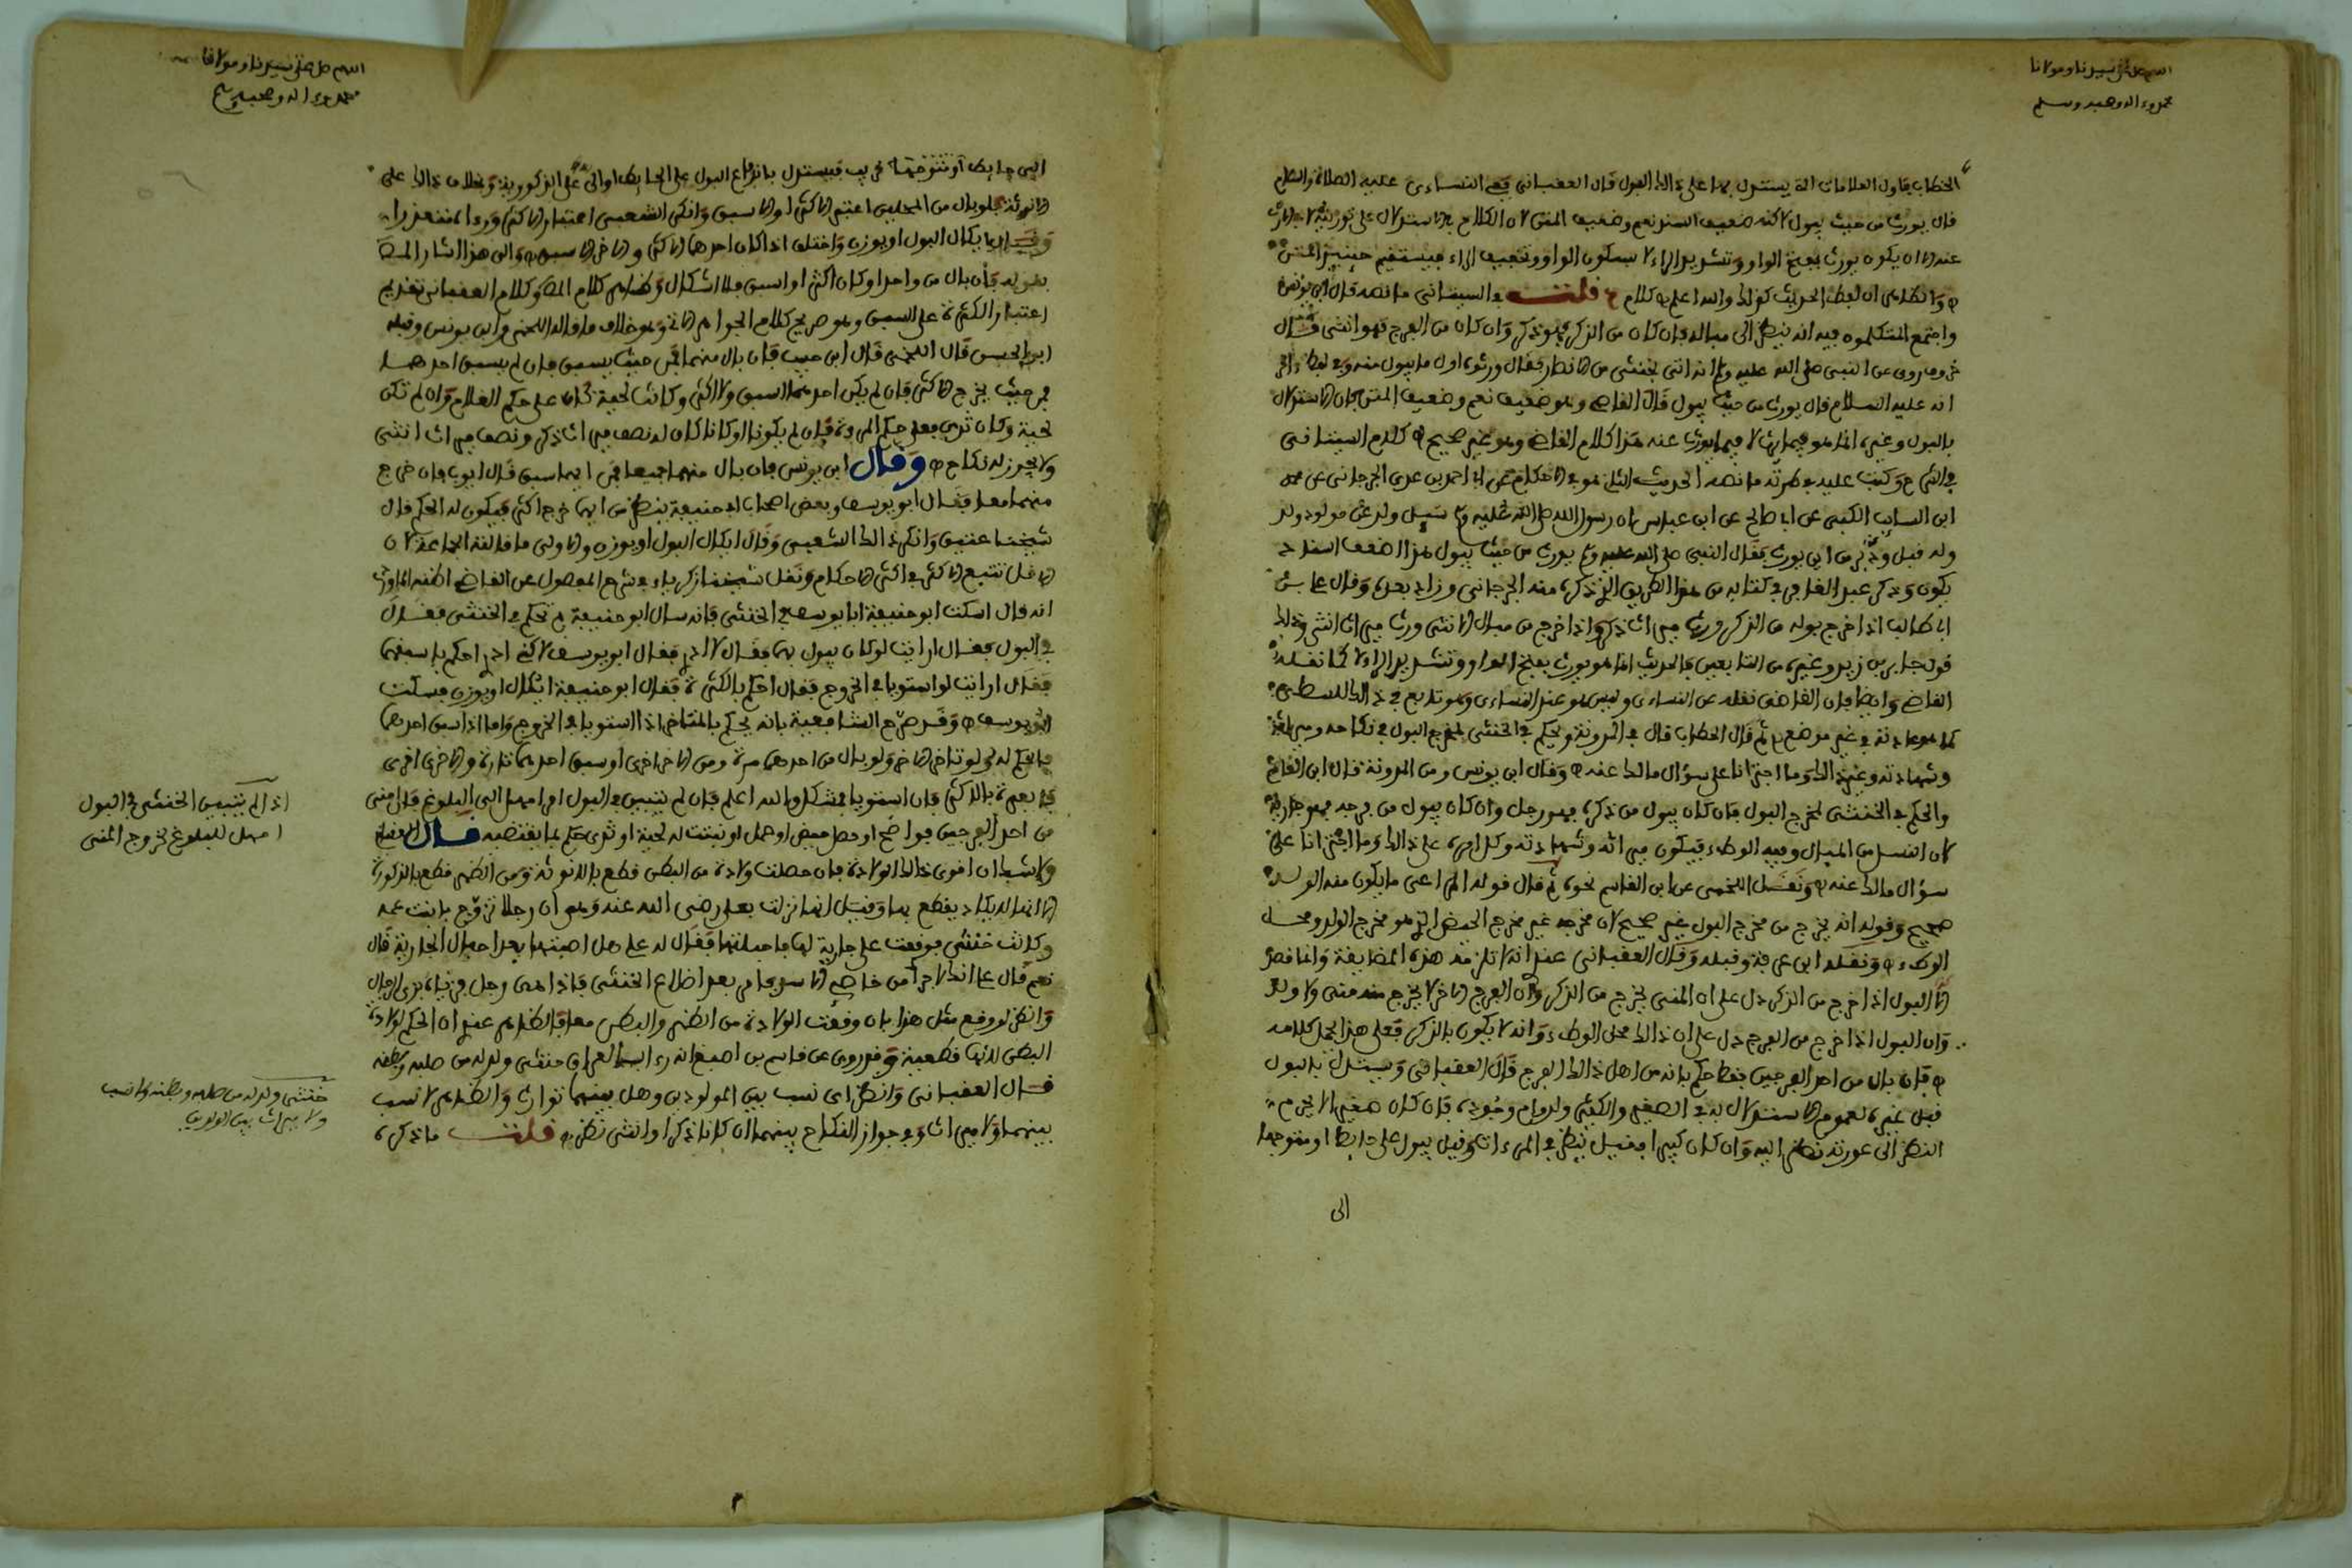 اللهم صل على سيدنا ومولانا
محمد وءاله وصحبه وسلم
الحطاب فاول العلامات التي يستدل بها على ذالك البول قال العقباني ففي النساءي عليه الصلاة والسلام
قال يورث من حيث يبول لاكنه ضعيف السند نعم وضعيف المتن لان الكلام في الاستدلال على توريثه لا
عند الا ان يكون يورث بفتح الواو وتشديد الراء لا بسكون الواو وتخفيف الراء فيستقيم حينئذ المتن
والظاهر ان لفظ الحديث كذالك والله اعلم ه كلام ح قلت السيتاني ما نصه قال ابن يونس
واجتمع المتكلمون فيه انه ينظر الى مباله فان كان من الذكر فهو ذكر وان كان من الفرج فهو انثى قال
وروى عن النبي صلى الله عليه وسلم انه اتى بخنثى من الانصار فقال ورثوه اول ما يبول منه وفي لفظ ءاخر
انه عليه السلام قال يورث من حيث يبول قال القاضي وهو ضعيف نعم وضعيف المتن لان الاستدلال
بالبول وغيره انما هو فيما يرث لا فيما يورث عنه هذا كلام القاضي وهو غير صحيح ه كلام السيتاني
في الشرح وكتب عليه في طرته ما نصه الحديث الثاني هو في الاحكام عن ابي احمد بن عدي الجرجاني عن محمد
ابن السايب الكلبي عن ابي صالح عن ابن عباس ان رسول الله صلى الله عليه وسلم سيل ولد عن مولود ولد
وله قبل وذكر من اين يورث فقال النبي صلى الله عليه وسلم يورث من حيث يبول هذا اضعف اسناد
يكون وذكر عبد الحق في كتابه من هذا الطريق الذي ذكره منه الجرجاني وزاد بعده وقال علي بن
ابي طالب اذا خرج بوله من الذكر ورث ميراث ذكر واذا خرج من مبال الانثى ورث ميراث انثى وذالك
قول جابر بن زيد وغيره من التابعين فالحديث انما هو يورث بفتح الواو وتشديد الراء لا كما نقله
القاضي وايضا فان القاضي نقله عن النساءي وليس هو عند النساءي وهو تابع في ذالك للسطي
كما هو عادته في غير موضع ه ثم قال الحطاب قال في المدونة ويحكم في الخنثى بمخرج البول في نكاحه وميراثه
وشهادته وغير ذالك وما اجترانا على سؤال مالك عنه ه وقال ابن يونس ومن المدونة قال ابن القاسم
والحكم في الخنثى لمخرج البول فان كان يبول من ذكره فهو رجل وان كان يبول من فرجه فهو جارية
لان النسل من المبال وفيه الوطء فيكون ميراثه وشهادته وكل امره على ذالك وما اجترانا على
سؤال مالك عنه ه ونقل اللخمي عن ابن القاسم نحوه ثم قال قوله المراعى ما يكون منه الولد
صحيح وقوله انه يخرج من مخرج البول غير صحيح لان مخرجه غير مخرج الحيض الذي هو مخرج الولد ومحل
الوطء ه ونقله ابن عرفة وقبله وقال العقباني عندي انه لا تلزمه هذه المضايقة وانما قصده
ان البول اذا خرج من الذكر دل على ان المني يخرج من الذكر وان الفرج الاخر لا يخرج منه مني ولا ولد
وان البول اذا خرج من الفرج دل على ان ذالك محل الوطء وانه لا يكون بالذكر فعلى هذا يحمل كلامه
ه فان بال من احد الفرجين فقط حكم بانه من اهل ذالك الفرج قال العقباني ويستدل بالبول
قبل غيره لعموم الاستدلال به في الصغير والكبير ولدوام وجوده فان كان صغيرا لا يحرم
النظر الى عورته نظر اليه وان كان كبيرا فقيل ينظر في المرءاة وقيل يبول على حايط او متوجها
الى
اللهم صل على سيدنا ومولانا
محمد وءاله وصحبه وسلم
الى حايط او متوجها قريب فيستدل باندفاع البول على الحايط او الى على الذكورية وبخلاف ذالك على
الانوثة فلو بال من المحلين اعتبر الاكثر او الاسبق وانكر الشعبي اعتبار الاكثر وراء المتعذرا
وقيل يكال البول او يوزن واختلف اذا كان احدهما الاكثر والاخر الاسبق ه والى هذا اشار المص
بقوله فان بال من واحد او كان اكثر او اسبق فلا اشكال وظاهر كلام المص وكلام العقباني تقديم
اعتبار الكثرة على السبق وهو صريح كلام الجواهر وهو خلاف ما قاله اللخمي وابن يونس وقبله
ابو الحسن قال اللخمي قال ابن حبيب فان بال منهما فمن حيث يسبق فان لم يسبق احدهما
فمن حيث يخرج الاكثر فان لم يكن احدهما السبق ولا اكثر وكانت لحية كان على حكم الغلام وان لم تكن
لحية وكان ثدي فعلى حكم المرءة فان لم يكونا او كانا كان له نصف ميراث ذكر ونصف ميراث انثى
ولا يجوز له نكاح ه وقال ابن يونس فان بال منهما جميعا فمن ايهما سبق قال ابوب فان خرج
منهما معا فقال ابو يوسف وبعض اصحاب ابي حنيفة ينظر من ايهما خرج اكثر فيكون له الحكم قال
شيخنا عتيق وانكر ذالك الشعبي وقال ايكال البول او يوزن والاولى ما قالته الجماعة لان
الاقل تتبع الاكثر في اكثر الاحكام ونقل شيخنا زكرياء في شرح الفصول عن القاضي
انه قال اسكت ابو حنيفة ابا يوسف في الخنثى فانه سال ابو حنيفة بم تحكم في الخنثى فقال
في البول فقال ارايت لو كان يبول بهما فقال لا ادري فقال ابو يوسف لاكني ادري احكم باسبقهما
فقال ارايت لو استويا في الخروج فقال احكم بالكثرة فقال ابو حنيفة ايكال او يوزن فسكت
ابو يوسف ه وقد صرح الشافعية بانه يحكم بالمتاخر اذا استويا في الخروج واما اذا سبق احدهما
فالحكم له ولو تاخر الاخر ولو بال من احدهما مرة ومن الاخر اخرى او سبق احدهما تارة والاخرى اخرى
فالعبرة بالكثير فان استويا فمشكل والله اعلم فان لم يتبين في البول امهل الى البلوغ فان امنى
من احد الفرجين فواضح او حصل حيض او حمل او نبتت له لحية او ثدي حكم بما يقتضيه قال
ولا شك ان اقوى ذالك الولادة فان حصلت ولادة من البطن قطع بالانوثة ومن الظهر قطع بالذكورة
الا انه لا يكاد يقطع بها وقيل انها نزلت بعلي رضي الله عنه وهو ان رجلا تزوج بابنت عمه
وكانت خنثى فوقعت على جارية لها فاحبلتها فقال له علي هل اصبتها بعد احبال الجارية قال
نعم قال علي انك لاجرأ من خاصي الاسد فامر بعد اضلاع الخنثى فاذا هي رجل فزياه بزي الرجال
وانظر لو وقع مثل هذا بان وقعت الولادة من الظهر والبطن معا فالظاهر عندي ان الحكم لولادة
البطن لانها قطعية وقد روى عن قاسم بن اصبغ انه رءا بالعراق خنثى ولد له من صلبه وبطنه
قال العقباني وانظر اي نسب بين المولودين وهل بينهما توارث والظاهر لا نسب
بينهما ولا ميراث وفي جواز النكاح بينهما ان كانا ذكرا وانثى نظر ه قلت ما ذكره
اذا لم يتبين الخنثى في البول
امهل للبلوغ لخروج المني
خنثى ولد له من صلبه وبطنه لا نسب
ولا ميراث بين الولدين